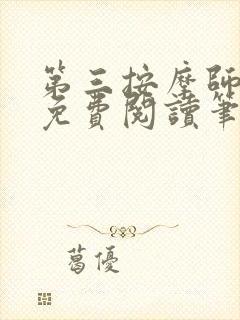 第三按摩師
免費閱讀筆
葛優